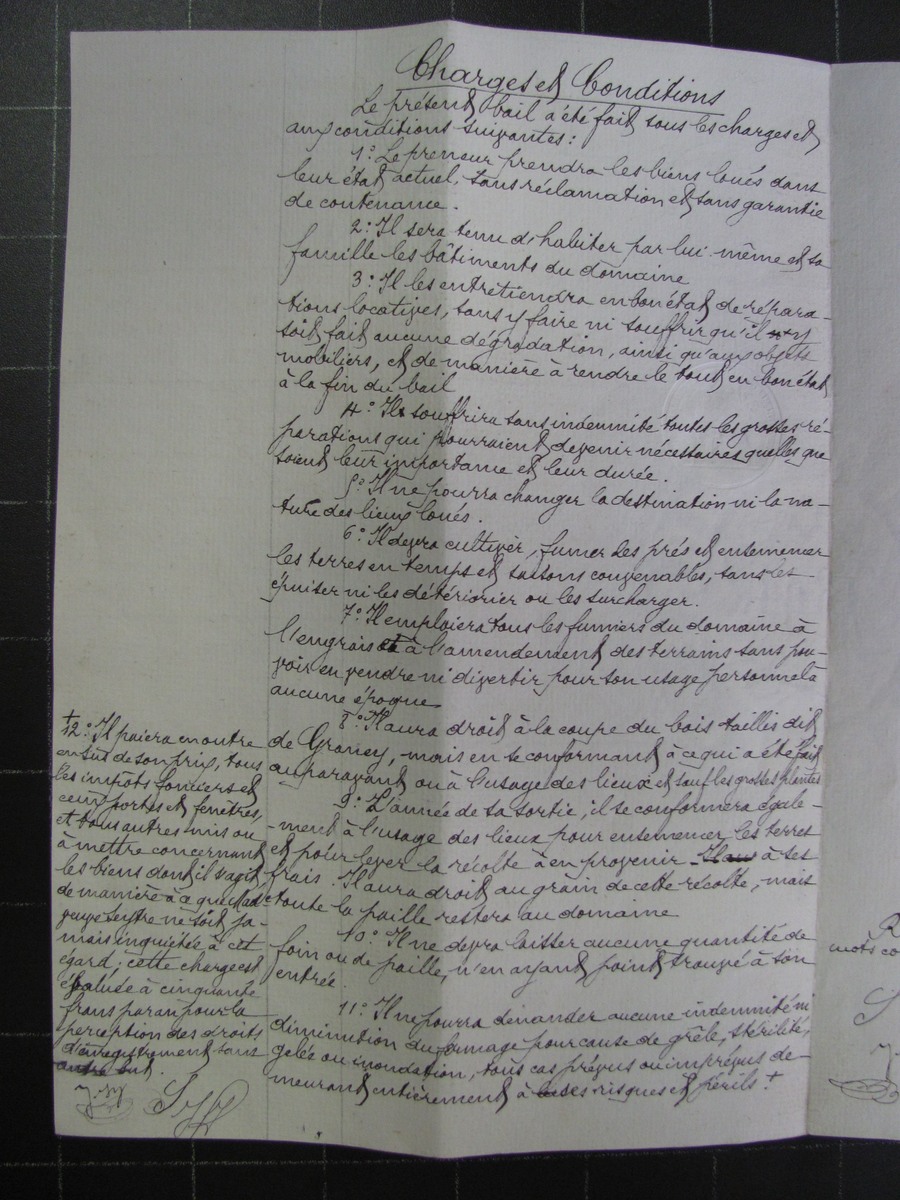 Charges et Conditions
Le présent bail a été fait sous les charges et
aux conditions suivantes :
1° Le preneur prendra les biens loués dans
leur état actuel, sans réclamation et sans garantie
de contenance.
2° Il sera tenu d'habiter par lui-même et sa
famille les bâtiments du domaine
3° Il les entretiendra en bon état de répara-
tions locatives, sans y faire ni souffrir qu'il y
soit fait aucune dégradation, ainsi qu'aux objets
mobiliers, et de manière à rendre le tout en bon état
à la fin du bail
4° Il souffrira sans indemnité toutes les grosses ré-
parations qui pourraient devenir nécessaires quelles que
soient leur importance et leur durée.
5° Il ne pourra changer la destination ni la na-
ture des lieux loués.
6° Il devra cultiver, fumer les prés et ensemencer
les terres en temps et saisons convenables, sans les
épuiser ni les détériorier ou les surcharger.
7° Il emploiera tous les fumiers du domaine à
l'engrais et à l'amendement des terrains sans pou-
voir en vendre ni divertir pour son usage personnel à
aucune époque
8° Il aura droit à la coupe du bois taillis dit
de Graney, mais en se conformant à ce qui a été fait
auparavant ou à l'usage des lieux et sauf les grosses plantes
9° L'année de sa sortie, il se conformera égale-
-ment à l'usage des lieux pour ensemencer les terres
et pour lever la récolte à en provenir à ses
frais. Il aura droit au grain de cette récolte, mais
toute la paille restera au domaine
10° Il ne devra laisser aucune quantité de
foin ou de paille, n'en ayant point trouvé à son
entrée.
11° Il ne pourra demander aucune indemnité ni
diminution du fermage pour cause de grêle, stérilité,
gelée ou inondation, tous cas prévus ou imprévus de-
meurant entièrement à ses risques et périls. +
+
12° Il paiera en outre
en sus de son prix, tous
les impôts fonciers et
ceux portes et fenêtres,
et tous autres mis ou
à mettre concernant
les biens dont il s'agit,
de manière à ce que Mad
ne soit ja-
mais inquiétée à cet
égard ; cette charge est
évaluée à cinquante
frans par an pour la
perception des droits
d'enregistrement sans
autre but.
R
mots co